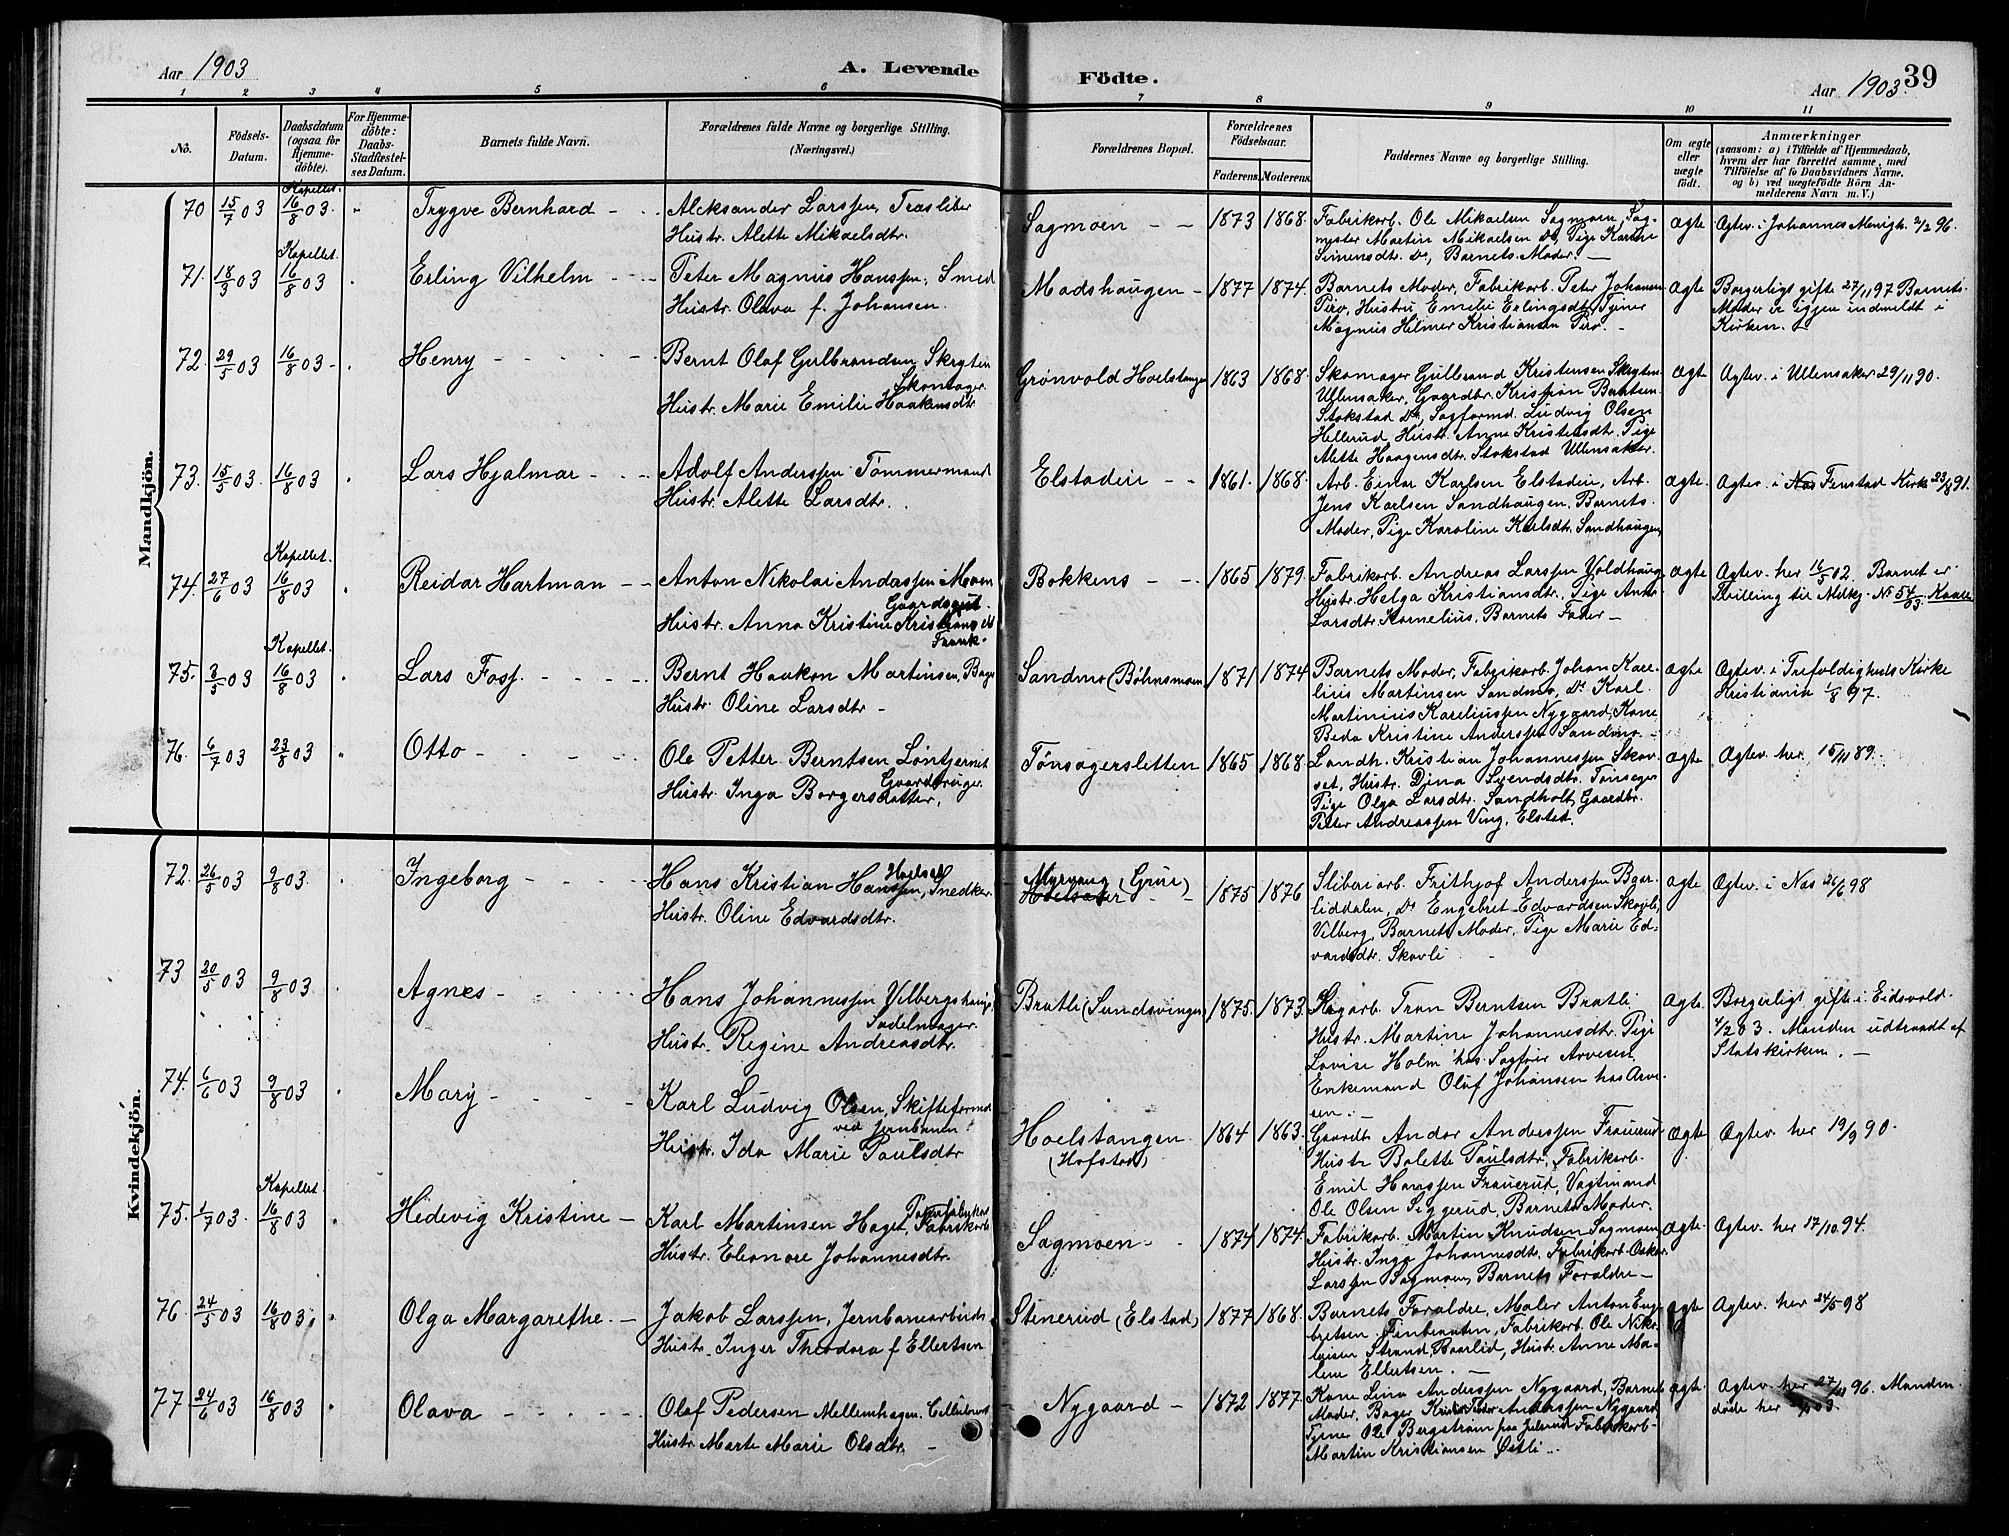 Aar 1903
A. Levende
Födte.
Aar 1903.
39
1 2 3 4 5 6 7 8 9 10 11
No.
Födsels-
Datum.
Daabsdatum
(ogsaa for
Hjemme-
döbte).
For Hjemme-
döbte:
Daabs-
Stadfæstel-
ses Datum.
Barnets fulde Navn.
Forældrenes fulde Navne og borgerlige Stilling.
(Næringsvei.)
Forældrenes Bopæl.
Forældrenes
Födselsaar.
Faderens. Moderens.
Faddernes Navne og borgerlige Stilling.
Om ægte
eller
uægte
födt.
Anmærkninger
(saasom: a) i Tilfælde af Hjemmedaab,
hvem der har forrettet samme, med
Tilföielse af to Daabsvidners Navne.
og b) ved uægtefödte Börn An-
melderens Navn m. V.)
Mandkjön.
70 15/7 03 Kapellet. 16/8 03. Trygve Bernhard
Aleksander Larssen, Træsliber
Hustr. Alette Mikaelsdtr.
Sagmoen 1873 1868
Fabrikarb. Ole Mikaelsen Sagmoen, Sag-
mester Martin Mikaelsen Do, Pige Karthe
Simensdtr. Do, Barnets Moder.
ægte
Ægtev. i Johannes Menigh. 2/2 96.
71. 18/3 03 Kapellet. 16/8 03 Erling Vilhelm
Peter Magnus Hanssen, Smed
Hustr. Olava f. Johansen.
Madshaugen 1877 1874.
Barnets Moder, Fabrikarb. Peter Johansen
Piro, Hustru Emilie Erlingsdtr, Tjener
Magnus Hilmer Kristiansen Piro.
ægte
Borgerligt gifte 27/11 97 Barnets
Moder er igjen indmeldt i
Kirken.
72. 29/5 03 16/8 03 Henry
Bernt Olaf Gulbrandsen Skrytin
Skomager.
Hustr. Marie Emilie Haakensdtr
Grønvold Hoelstangen 1863 1868.
Skomager Gulbrand Kristensen Skryten
Ullensaker, Gaardbr. Kristian Berntsen
Stokstad Do, Sagformd. Ludvig Olsen
Hellerud, Hustr. Anne Kristensdtr. Pige
Alette Haagensdtr. Stokstad Ullensaker.
ægte
Ægtev. i Ullensaker 29/11 90.
73. 15/5 03. 16/8 03 Lars Hjalmar
Adolf Anderssen Tømmermand
Hustr. Alette Larsdtr.
Elstadeie 1861. 1868.
Arb. Einar Karlsen Elstadeie, Arb.
Jens Karlsen Sandhaugen, Barnets
Moder, Pige Karoline Karlsdtr. Sandhaugen
ægte.
Ægtev. i Fenstad Kirke 23/8 91.
74. 27/6 03 Kapellet. 16/8 03 Reidar Hartman
Anton Nikolai Anderssen Moen
Gaardsgut.
Hustr. Anna Kristine Kristiansdtr
Frank.
Bokkens 1865 1879.
Fabrikarb. Andreas Larssen Voldhaug
Hustr. Helga Kristiansdtr., Pige Anne
Larsdtr. Kornelius, Barnets Fader
ægte
Ægtev. her 16/5 02. Barnet er
Tvilling til Mdkj. No 54/03.
75. 3/5 03 Kapellet. 16/8 03 Lars Foss.
Bernt Haakon Martinsen, Bager
Hustr. Oline Larsdtr
Sandmo (Bøhnsmoen) 1871 1874
Barnets Moder, Fabrikarb. Johan Kare-
lius Martinsen Sandmo, Do Karl
Martinius Kareliussen Nygaard, Kone
Beda Kristine Anderssen Sandmo.
ægte
Ægtev. i Trefoldigheds Kirke
Kristiania 1/8 97.
76. 6/7 03 23/8 03 Otto
Ole Petter Berntsen Løntjernet
Gaardbruger.
Hustr. Inga Borgersdatter,
Tønsagersletten 1865 1868
Landh. Kristian Johannessen Skov-
set, Hustr. Dina Svendsdtr. Tønsager
Pige Olga Larsdtr. Sandholt, Gaardbr.
Peter Andreassen Ving, Elstad.
ægte
Ægtev. her. 15/11 89.
Kvindekjön.
72. 26/5 03 9/8 03. Ingeborg
Hans Kristian Hanssen, Snedker.
Hustr. Oline Edvardsdtr.
Myrvang (Grue)
Hoelsaker 1875 1876
Sliberiarb. Frithjof Anderssen Baar-
liddalen, Do Engebret Edvardsen Skovli,
Vilberg, Barnets Moder, Pige Marie Ed-
vardsdtr. Skovli
ægte
Ægtev. i Næs 26/6 98
73 20/5 03 9/8 03 Agnes
Hans Johannessen Vilbergshaug
Sadelmager.
Hustr. Regine Andreasdtr.
Bratli (Sundsvingen) 1875. 1873.
Sagarb. Tran Berntsen Bratli
Hustr. Martine Johannesdtr. Pige
Lovise Holm hos Sagfrier Arvesen,
Enkemand Oluf Johansen hos Arve-
sen.
ægte
Borgerligt gifte i Eidsvold
4/2 03. Manden udtraadt af
Statskirken.
74. 6/6 03 9/8 03 Mary
Karl Ludvig Olsen, Skifteformd
ved Jernbanen
Hustr. Ida Marie Paulsdtr
Hoelstangen
(Hofstad) 1864 1863.
Gaardbr. Andor Anderssen Frauerud
Hustr Bolette Paulsdtr, Fabrikarb.
Emil Hanssen Frauerud, Vagtmand
Ole Olsen Siggerud, Barnets Moder.
ægte
Ægtev. her 19/9 90.
75. 1/7 03. Kapellet. 16/8 03 Hedevig Kristine
Karl Martinsen Haget, Fabrikarb
Hustr. Eleonore Johannesdtr.
Sagmoen 1874 1874.
Fabrikarb. Martin Knudsen Sagmoen
Hustr. Inga Johannesdtr. Fabrikarb. Oskar
Larssen Sagmoen, Barnets Forældre
ægte.
Ægtev. her 17/10 94.
76. 24/5 03 16/8 03. Olga Margarethe.
Jakob Larssen, Jernbanearbeider
Hustr. Inger Theodora f Ellertsen
Stenerud (Elstad) 1877 1868.
Barnets Forældre, Maler Anton Eng-
bretsen, Finbraaten, Fabrikarb. Ole Niko-
laisen Strand, Baarlid, Hustr. Anne Ma-
lene Ellertsen.
ægte
Ægtev. her 24/5 98
77 24/6 03 16/8 03 Olava
Olaf Pedersen Mellemhagen, Cellulosearb
Hustr. Marte Marie Olsdtr.
Nygaard 1872 1877.
Kone Lina Anderssen Nygaard, Barnets
Moder, Bager Anderssen Nygaard
Tjener Ole Bergstrøm paa Julsrud, Fabrikarb
Martin Kristiansen Østli
ægte
Ægtev. her 27/12 96. Manden
døde her 03.